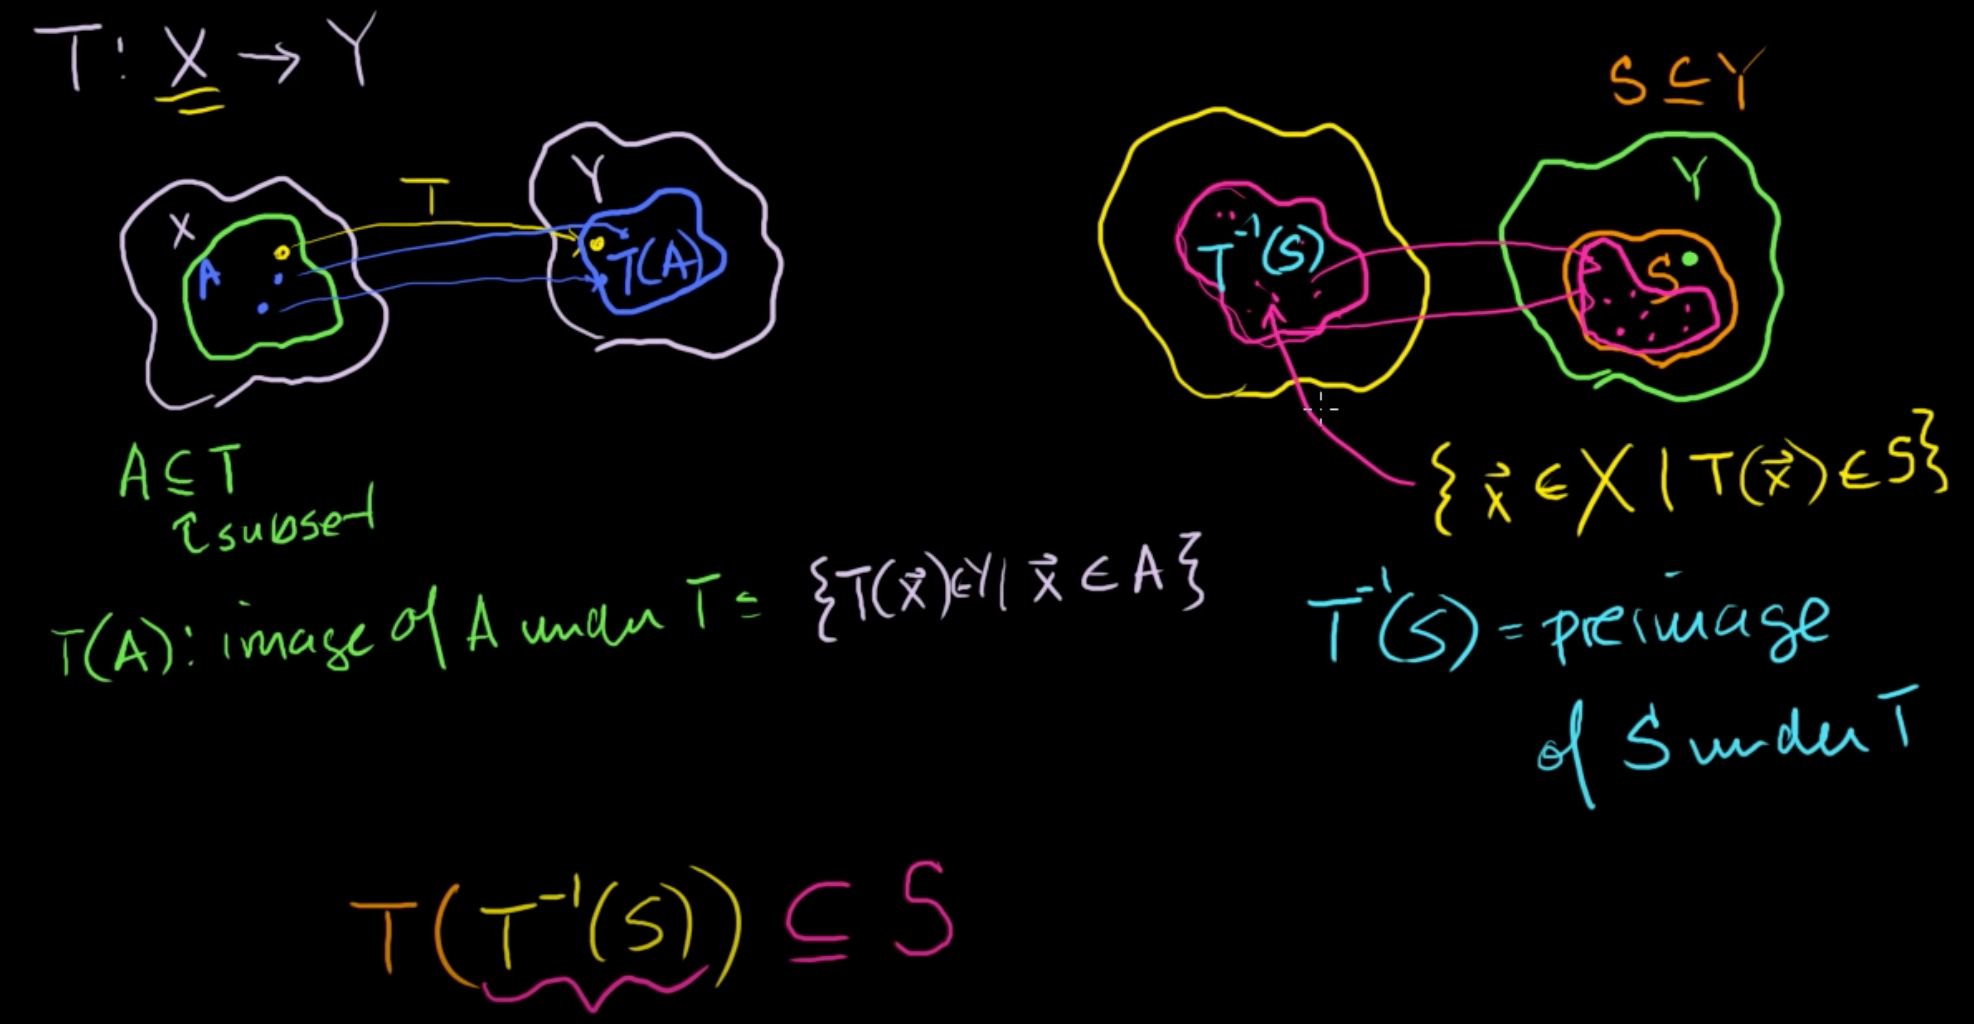 T: X → Y
S ⊆ Y
X
A
T
Y
T(A)
T⁻¹(S)
Y
S
A ⊆ T
subset
{x⃗ ∈ X | T(x⃗) ∈ S}
T(A): image of A under T = {T(x⃗) ∈ Y | x⃗ ∈ A}
T⁻¹(S) = preimage
of S under T
T(T⁻¹(S)) ⊆ S